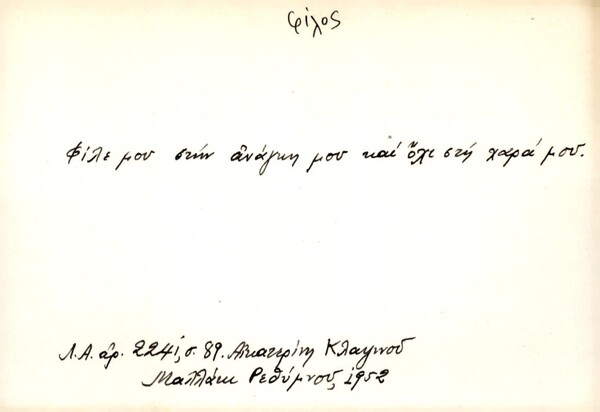 φίλος
Φίλε μου στήν ἀνάγκη μου καί ὄχι στή χαρά μου.
Λ.Α. ἀρ. 2241, σ. 89. Αἰκατερίνη
Ρεθύμνου, 1952